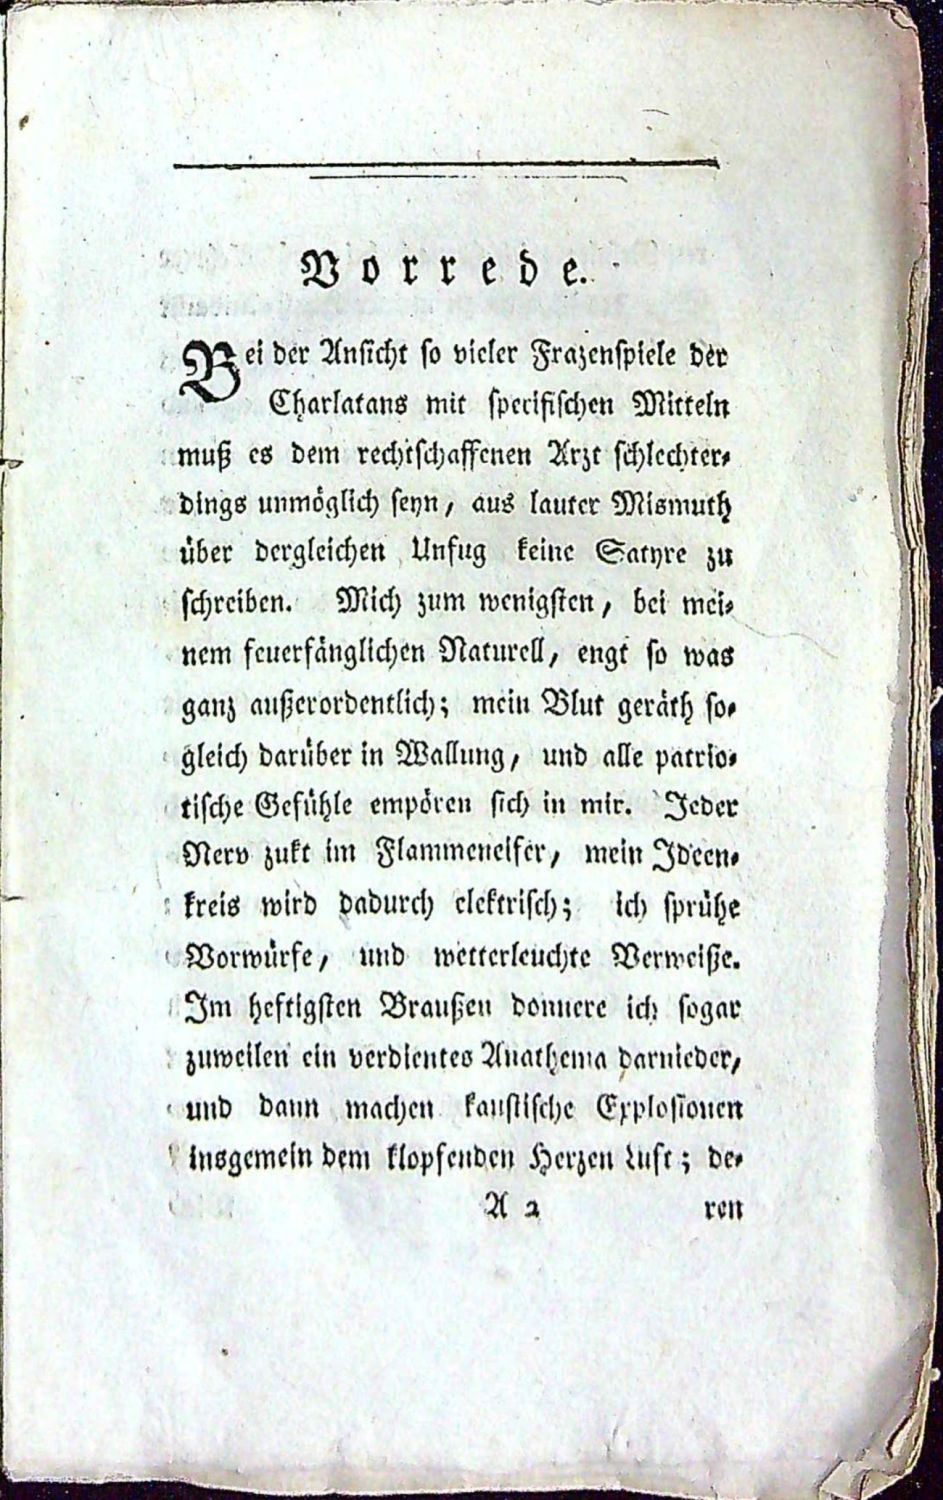 Vorrede.
Bei der Ansicht so vieler Frazenspiele der
Charlatans mit specifischen Mitteln
muß es dem rechtschaffenen Arzt schlechter-
dings unmöglich seyn, aus lauter Mismuth
über dergleichen Unfug keine Satyre zu
schreiben. Mich zum wenigsten, bei mei-
nem feuerfänglichen Naturell, engt so was
ganz außerordentlich; mein Blut geräth so-
gleich darüber in Wallung, und alle patrio-
tische Gefühle empören sich in mir. Jeder
Nerv zukt im Flammeneifer, mein Ideen-
kreis wird dadurch elektrisch; ich sprühe
Vorwürfe, und wetterleuchte Verweiße.
Im heftigsten Braußen donnere ich sogar
zuweilen ein verdientes Anathema darnieder,
und dann machen kaustische Explosionen
insgemein dem klopfenden Herzen Luft; de-
A 2 ren